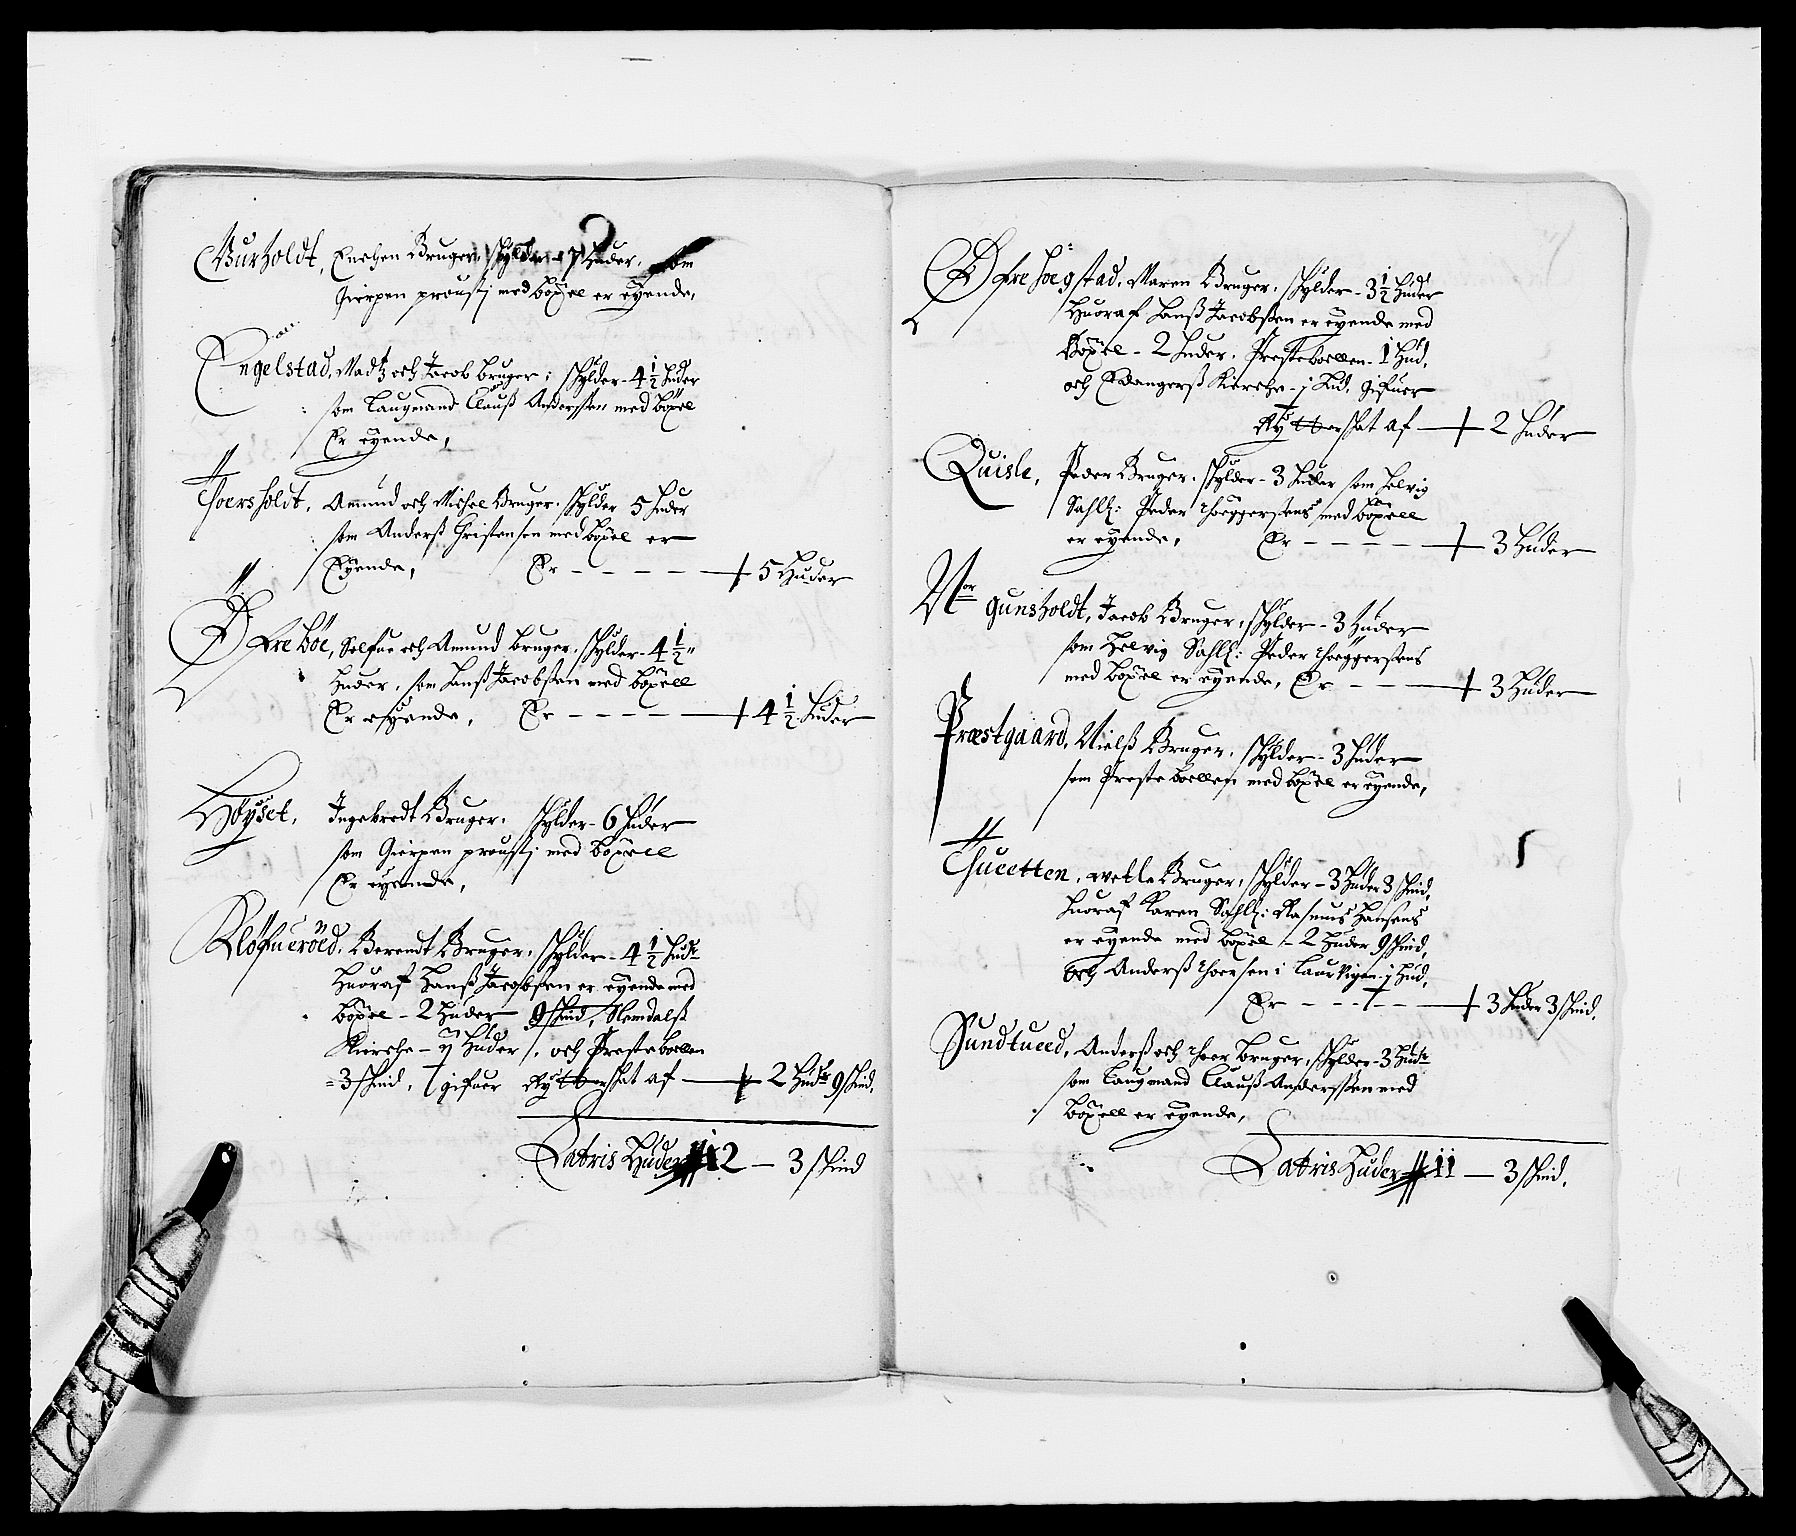 Burholdt, Enchen Bruger, skylder - 7 Huder, som
Gierpen proustj med böxel er eyende,
Engelstad, Madtz och Jacob bruger; skylder - 4 1/2 huder
som Laugmand Clauß Anderssen med böxel
Er eyende,
Thorsholdt, Amund och Michel Bruger, skylder 5 huder
som Anderß Christensen med böxel er
Eyende, Er - - - - - 5 Huder
Øfre bøe, och Amund bruger, skylder - 4 1/2
huder, som Hanß Jacobßen med böxell
Er eyende, Er - - - - 4 1/2 huder
Høyset, Ingebredt Bruger, skylder - 6 huder
som Gierpen proustj med böxell
Er eyende,
Kløfuerød, Berendt Bruger, skylder - 4 1/2 hudr
Huoraf Hanß Jacobßen er eyende med
böxel - 2 Huder 9 skind, Slemdalß
Kierche - ij Huder, och Prestebollen
= 3 skind, gifuer Rytterskat af — 2 Hudr 9 skind,
Latris Huder 12 — 3 skind
Øfre hoegstad, Maren Bruger, skylder - 3 1/2 Huder
Huoraf Hanß Jacobßen er eyende med
Böxel - 2 huder, Prestebollen - 1 Hud,
och Edangerß Kierche - j hud, gifuer
Rytterskat af — 2 huder
Quisle, Peder Bruger, skylder - 3 huder som Helvig
Sahlh: Peder med böxell
er eyende, Er - - - - 3 Huder
Nor gunsholdt, Jacob Bruger, skylder - 3 Huder
som Helvig Sahlh: Peder
med böxel er eyende, Er - - - 3 Huder
Præstgaard, Nielß Bruger, skylder - 3 huder
som Prestebollen med böxel er eyende,
Thuetten, wetle Bruger, skylder - 3 Huder 3 skind,
huoraf Karen Sahlh: Rasmus Hansens
er eyende med böxel - 2 Huder 9 skind,
och Anderß Thoersen i Laurvigen - j Hud,
Er - - - - - 3 huder 3 skind,
Sundtued, Anderß och Thoer bruger, skylder - 3 Hudr
som Laugmand Clauß Anderssen med
böxell er eyende,
Latris Huder 11 — 3 skind,